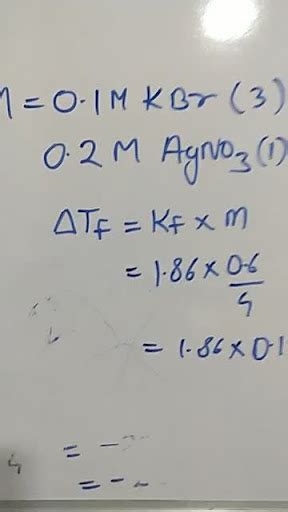 = 0.1 M KBr (3)
0.2 M AgNO3 (1)
ΔTf = Kf × m
= 1.86 × 0.6
4
= 1.86 × 0.1
= -
= -